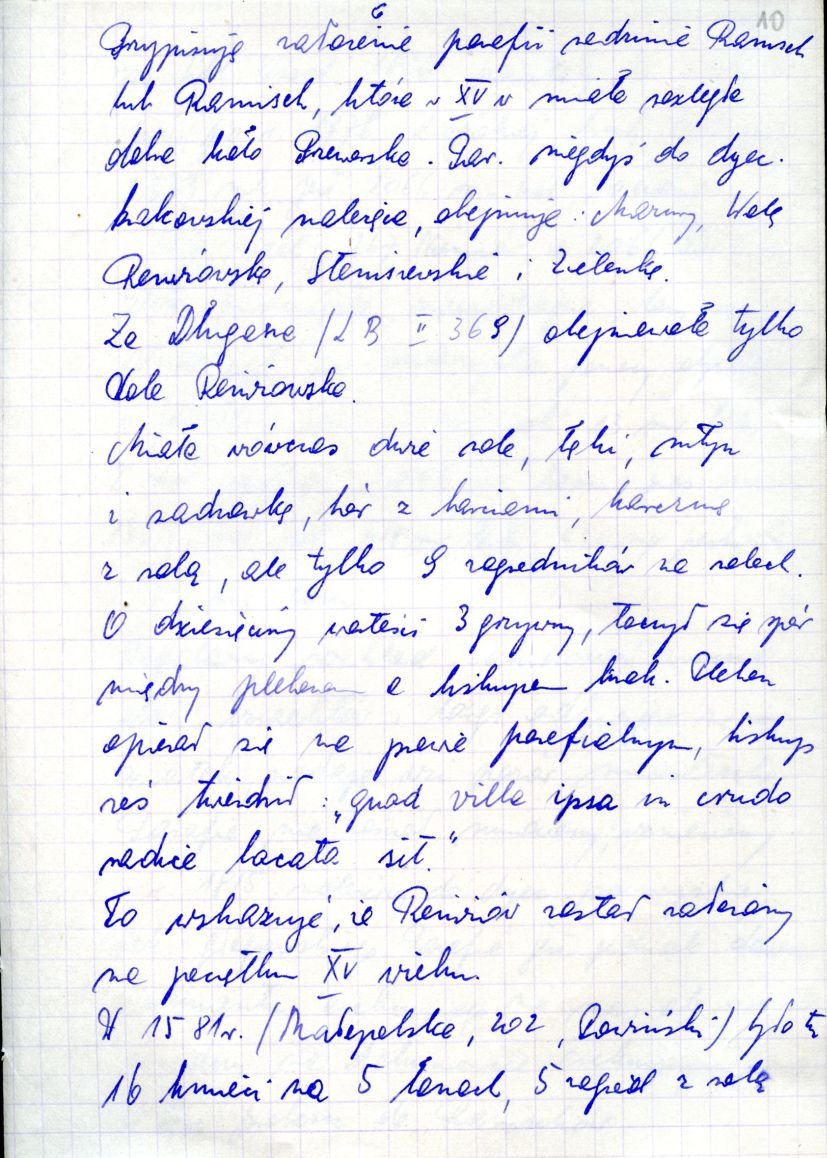 6
10
Przypisują założenie parafii rodzinie Ramsch
lub Ramisch, która w XV w miała rozległe
dobra koło Przeworska. Par. niegdyś do dyec.
krakowskiej należąca, obejmuje: Mazury, Wolę
Raniżowską, Staniszewskie i Zielonkę.
Za Długosza (LB II 369) obejmowała tylko
Wolę Raniżowską.
Miała wówczas dwie role, łąki, młyn
i sadzawkę, bór z barciami, karczmę
z rolą, ale tylko 9 zagrodników na rolach.
O dziesięciny wartości 3 grzywny, toczył się spór
między plebanem a biskupem krak. Pleban
opierał się na prawie parafialnym, biskup
zaś twierdził: „quod villa ipsa in crudo
radice locata sit."
To wskazuje, że Raniżów został założony
na początku XV wieku.
W 1581 r. (Małopolska, 202, Pawiński) było tu
16 kmieci na 5 łanach, 5 zagród z rolą